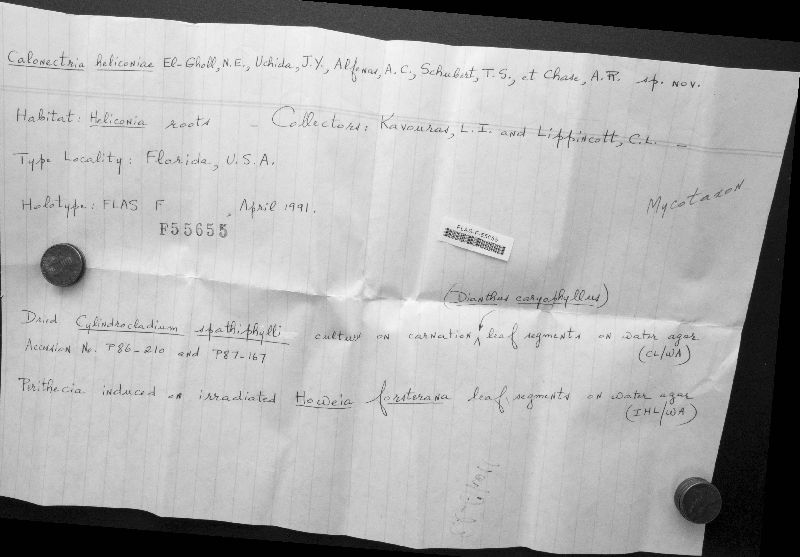 Calonectria heliconiae El-Gholl, N.E., Uchida, J.Y., Alfenas, A.C., Schubert, T.S., et Chase, A.R. sp. nov.
Habitat: Heliconia roots - Collectors: Kavouras, L.I. and Lippincott, C.L. -
Type Locality: Florida, U.S.A.
Mycotaxon
Holotype: FLAS F , April 1991.
F55655
FLAS-F-55655
(Dianthus caryophyllus)
Dried Cylindrocladium spathiphylli culture on carnation leaf segments on water agar
Accession No. P86-210 and P87-167 (CL/WA)
Perithecia induced on irradiated Howeia forsterana leaf segments on water agar
(IHL/WA)